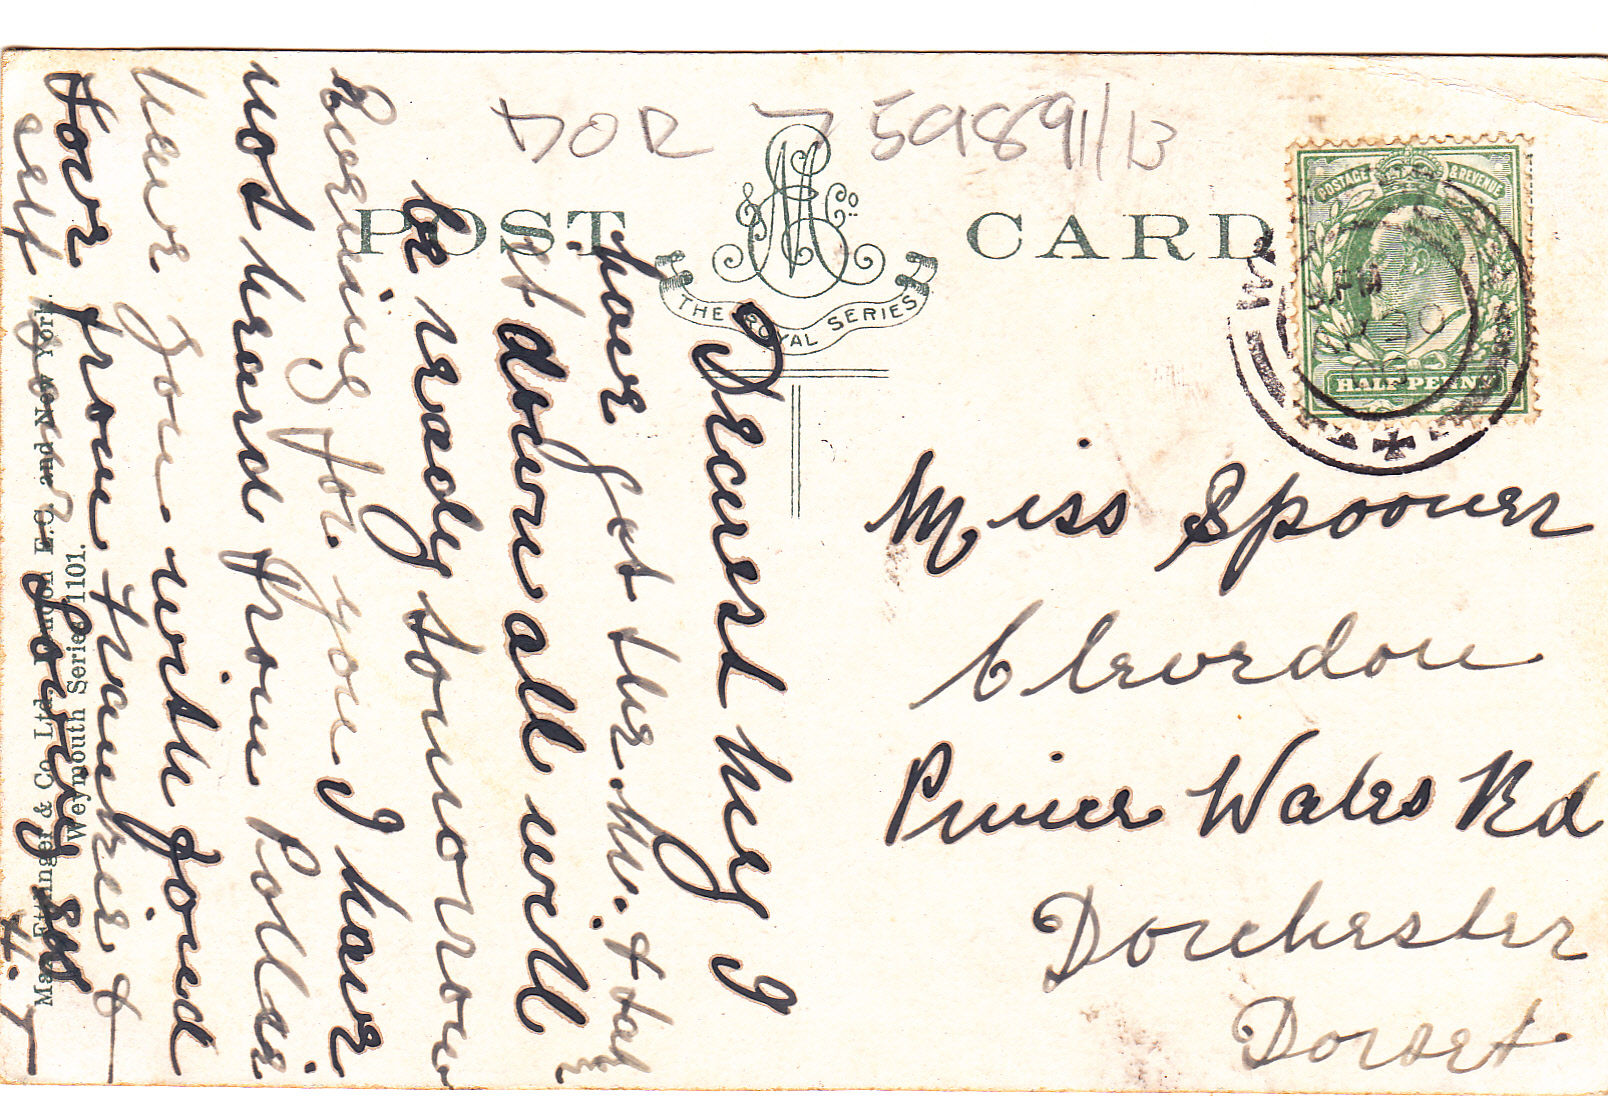 DOR 759891/13
POST CARD
M & Co
THE ROYAL SERIES
POSTAGE & REVENUE
HALFPENNY
Miss Spooner
Clevedon
Prince Wales Rd
Dorchester
Dorset
Dearest Meg I
hoer got the M. + tak
it down all will
be ready tomorrow
Evening for you I have
not heard from Poller
have you. with fond
love from Frankie &
self
Max Ettlinger & Co. Ltd., London E.C. and New York.
Weymouth Series 1101.